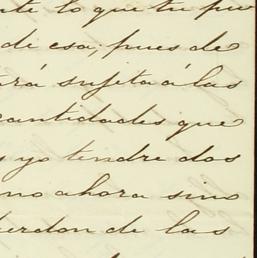 nte lo que tu pu
di esa, pues de
tará sujeta á las
cantidades que
s yo tendre dos
no ahora sino
uerdon de las